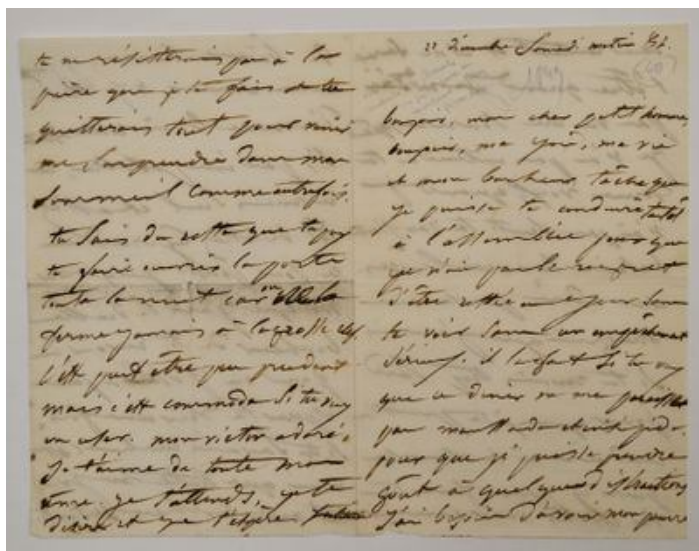 tu ne résisterais pas à la
prière que je te fais et tu
quitterais tout pour venir
me surprendre dans mon
sommeil comme autrefois.
tu sais du reste que tu
te faire ouvrir la porte
toute la nuit car on ne la
ferme jamais à la grosse clef
c'est peut être peu prudent
mais c'est commode si tu
en user. mon victor adoré,
je t'aime de toute mon
âme. je t'attends, je te
désire et je t'espère
22 décembre Samedi matin
bonjour, mon cher petit homme,
bonjour, ma joie, ma vie
et mon bonheur, tâche que
je puisse te conduire tantôt
à l'assemblée pour que
je n'aie pas le regret
d'être restée un jour sans
te voir sans un empêchement
sérieux. il le faut si tu
que ce dîner ne me paraisse
pas maussade et insipide
pour que je puisse prendre
goût à quelques distractions
j'ai besoin d'avoir mon pauvre